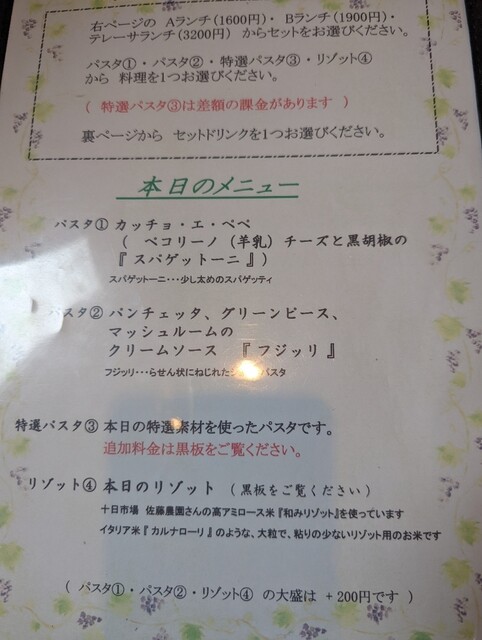 右ページの Aランチ(1600円)・ Bランチ(1900円)・
テレーサランチ(3200円) からセットをお選びください。
パスタ①・パスタ②・特選パスタ③・リゾット④
から 料理を1つお選びください。
( 特選パスタ③は差額の課金があります )
裏ページから セットドリンクを1つお選びください。
本日のメニュー
パスタ① カッチョ・エ・ペペ
( ペコリーノ (羊乳) チーズと黒胡椒の
『 スパゲットーニ 』)
スパゲットーニ・・・少し太めのスパゲッティ
パスタ② パンチェッタ、グリーンピース、
マッシュルームの
クリームソース 『 フジッリ 』
フジッリ・・・らせん状にねじれた パスタ
特選パスタ③ 本日の特選素材を使ったパスタです。
追加料金は黒板をご覧ください。
リゾット④ 本日のリゾット (黒板をご覧ください)
十日市場 佐藤農園さんの高アミロース米『和みリゾット』を使っています
イタリア米『 カルナローリ 』のような、大粒で、粘りの少ないリゾット用のお米です
( パスタ①・パスタ②・リゾット④ の大盛は +200円です )